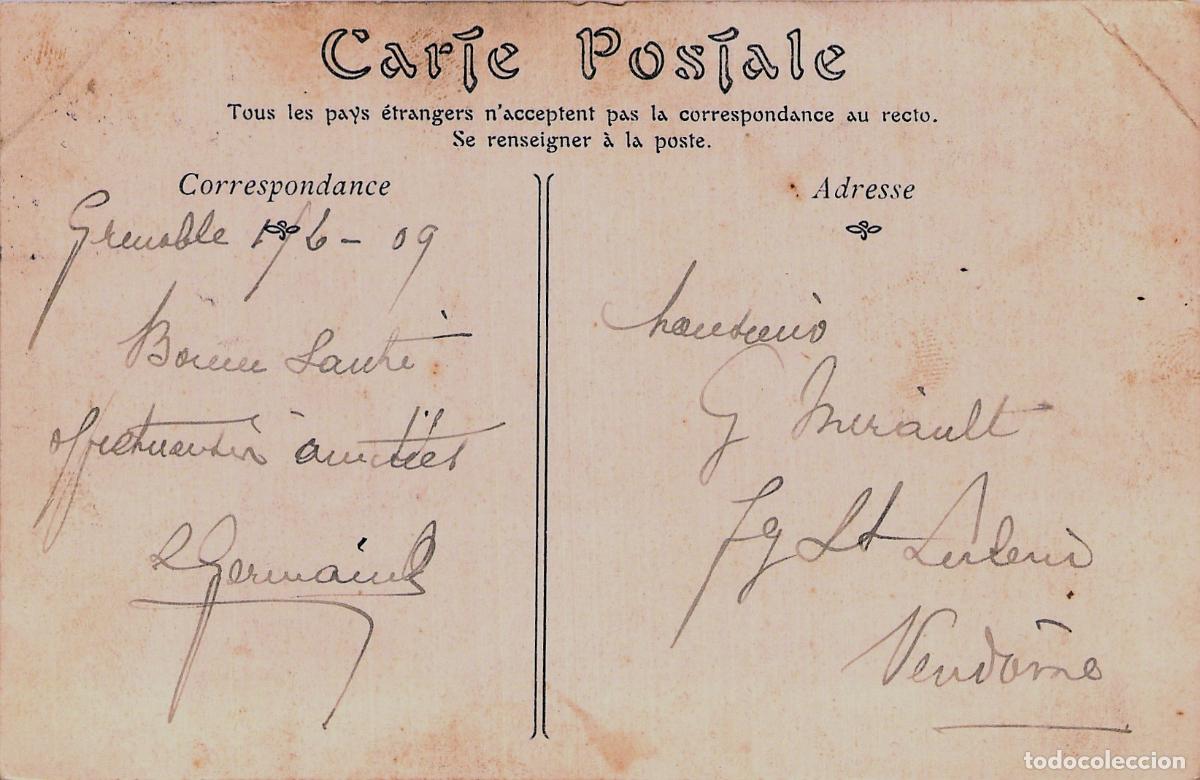 Carte Postale
Tous les pays étrangers n'acceptent pas la correspondance au recto.
Se renseigner à la poste.
Correspondance
Grenoble 1/6 - 09
Bonne Santé
amitiés
L Germain
Adresse
Monsieur
G Mérault
Fg St
Vendôme
todocoleccion